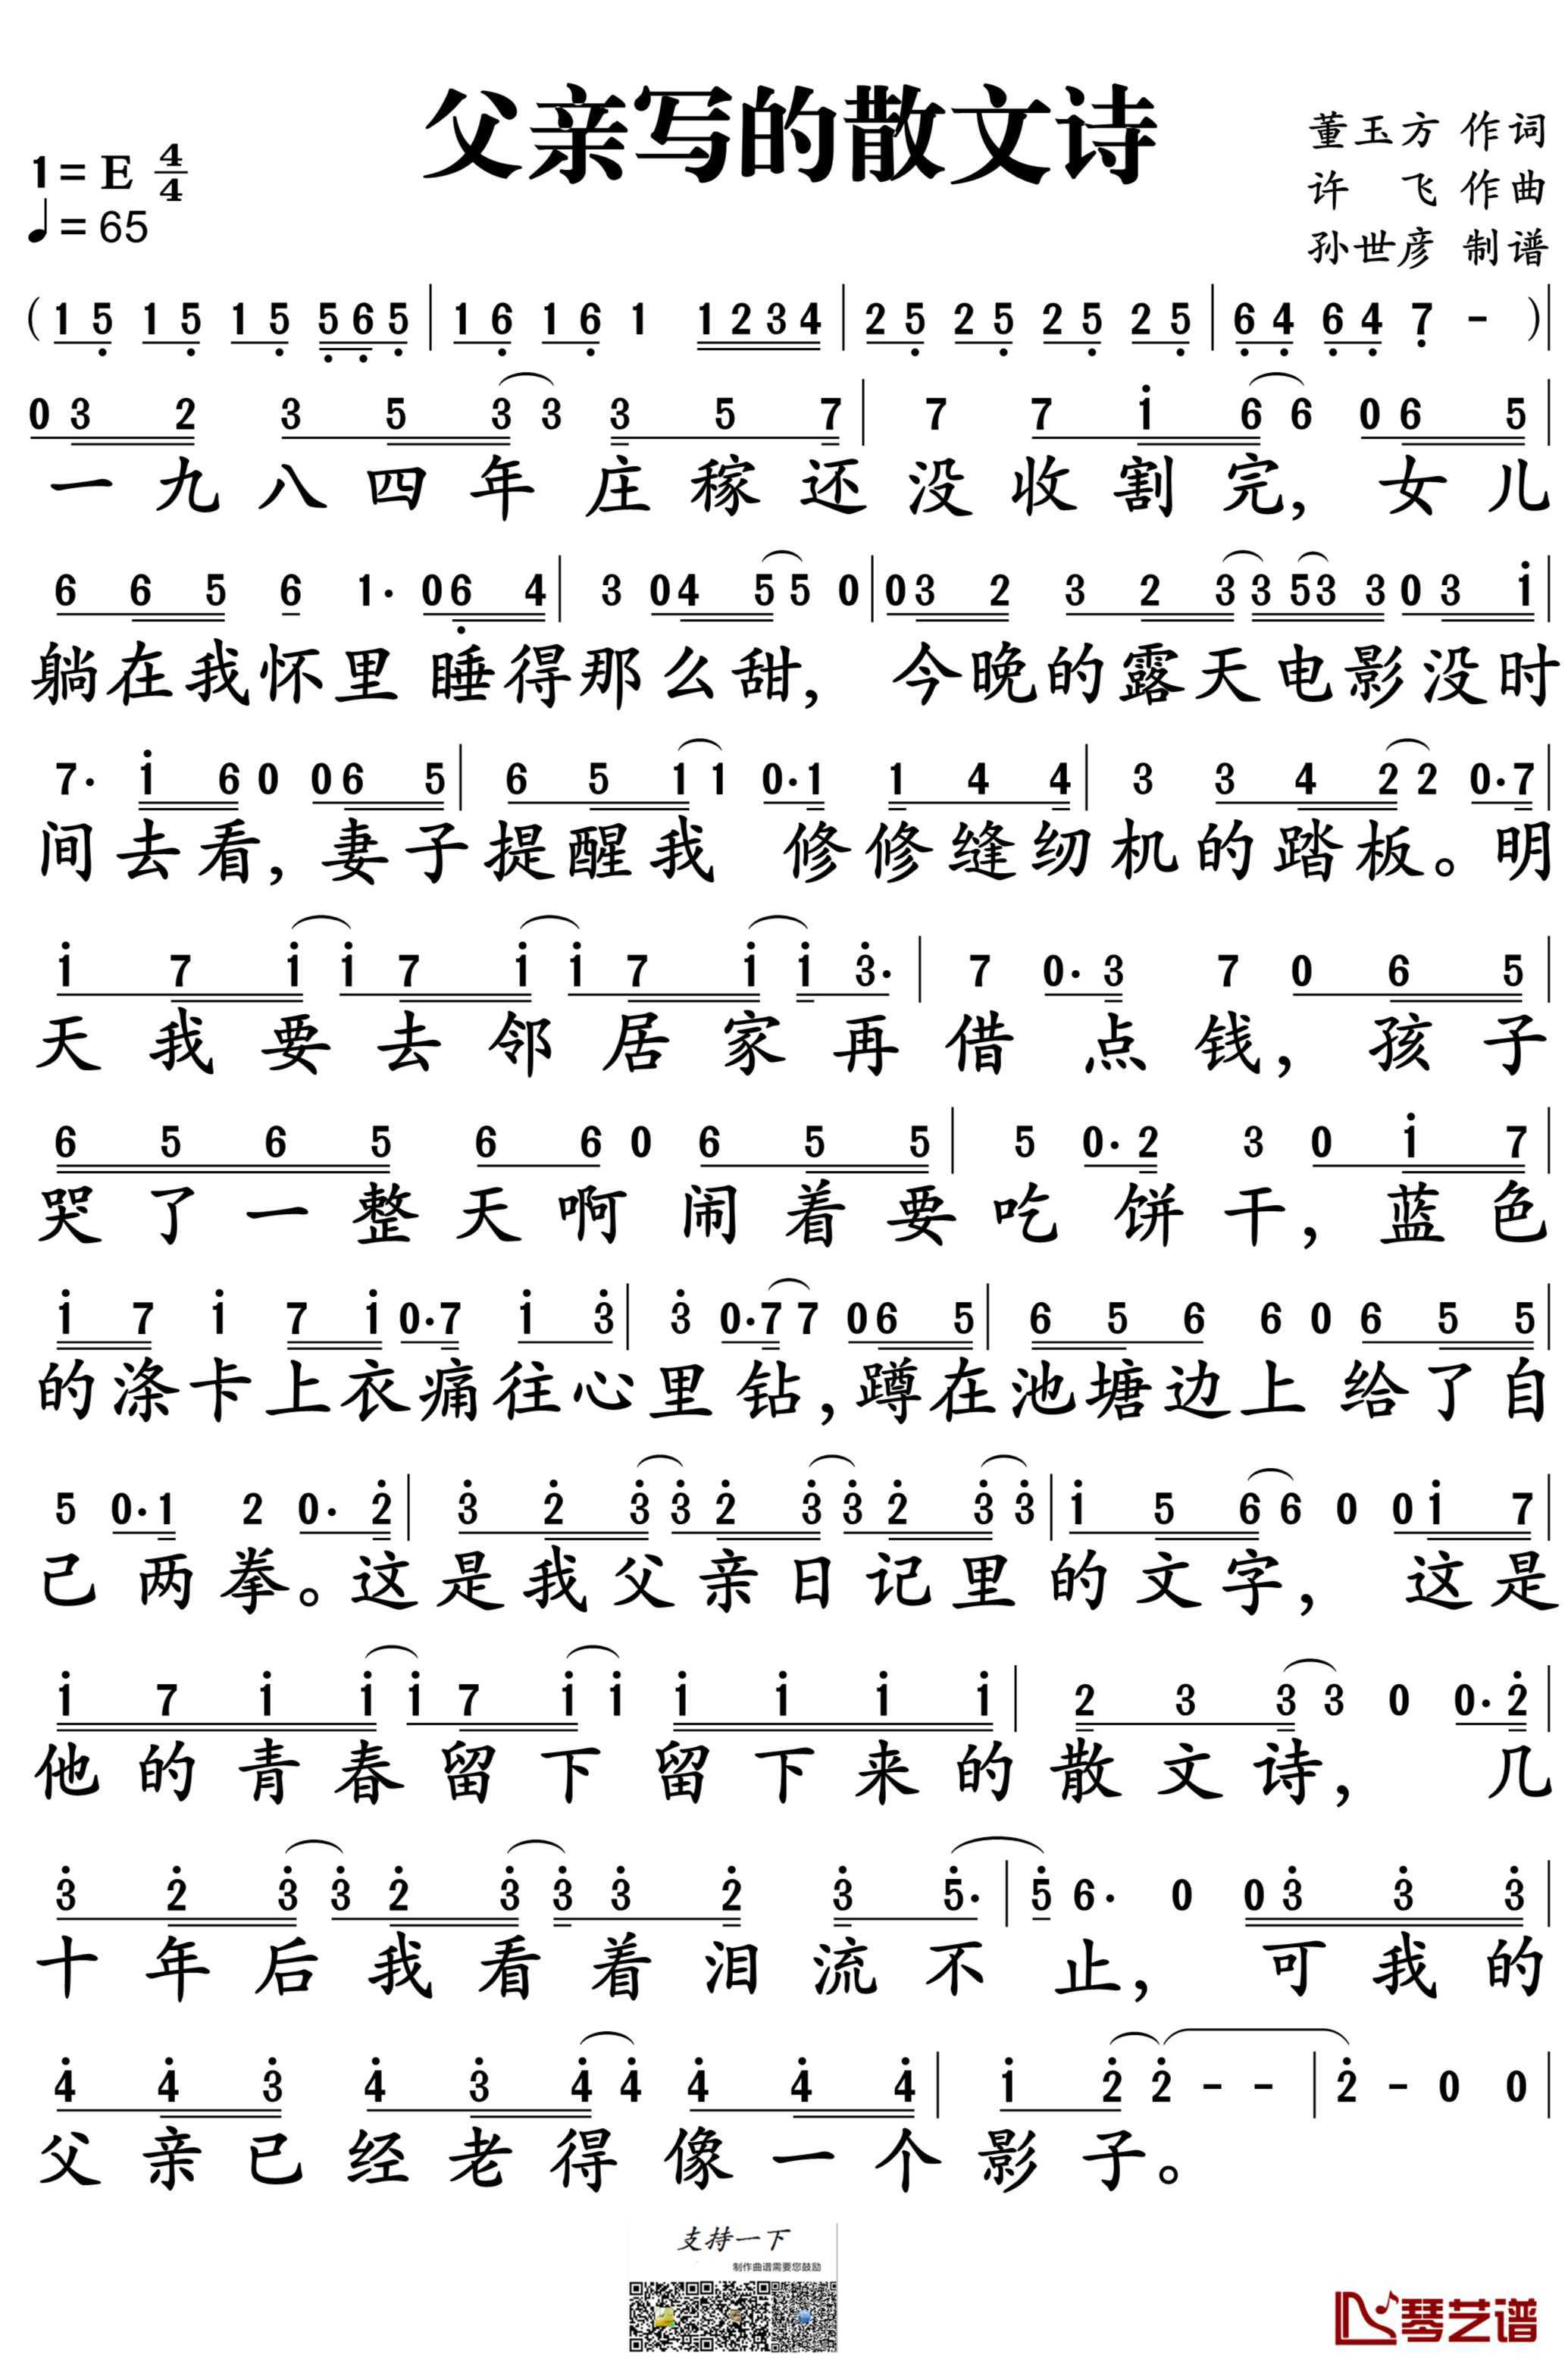 父亲写的散文诗
1=E 4/4
♩=65
董玉方 作词
许 飞 作曲
孙世彦 制谱
( 1 5̣ 1 5̣ 1 5̣ 5̣ 6̣ 5̣ | 1 6̣ 1 6̣ 1 1 2 3 4 | 2 5̣ 2 5̣ 2 5̣ 2 5̣ | 6̣ 4̣ 6̣ 4̣ 7̣ - ) |
0 3 2 3 5 3 3 3 5 7 | 7 7 1̇ 6 6 0 6 5
一九八四年庄稼还没收割完,女儿
6 6 5 6 1· 0 6̣ 4 | 3 0 4 5 5 0 | 0 3 2 3 2 3 3 5 3 3 0 3 1̇ |
躺在我怀里睡得那么甜, 今晚的露天电影没时
7· 1̇ 6 0 0 6 5 | 6 5 1 1 0· 1 1 4 4 | 3 3 4 2 2 0· 7 |
间去看,妻子提醒我 修修缝纫机的踏板。明
1̇ 7 1̇ 1̇ 7 1̇ 1̇ 7 1̇ 1̇ 3̇· | 7 0· 3 7 0 6 5 |
天我要去邻居家再借点钱,孩子
6 5 6 5 6 6 0 6 5 5 | 5 0· 2 3 0 1̇ 7 |
哭了一整天啊闹着要吃饼干,蓝色
1̇ 7 1̇ 7 1̇ 0· 7 1̇ 3̇ | 3̇ 0· 7 7 0 6 5 | 6 5 6 6 0 6 5 5 |
的涤卡上衣痛往心里钻,蹲在池塘边上给了自
5 0· 1 2 0· 2̇ | 3̇ 2̇ 3̇ 3̇ 2̇ 3̇ 3̇ 2̇ 3̇ 3̇ | 1̇ 5 6 6 0 0 1̇ 7 |
己两拳。这是我父亲日记里的文字, 这是
1̇ 7 1̇ 1̇ 1̇ 7 1̇ 1̇ 1̇ 1̇ 1̇ 1̇ | 2 3 3 3 0 0· 2̇ |
他的青春留下留下来的散文诗, 几
3̇ 2̇ 3̇ 3̇ 2̇ 3̇ 3̇ 3̇ 2̇ 3̇ 5̇· | 5̇ 6· 0 0 3̇ 3̇ 3̇ |
十年后我看着泪流不止, 可我的
4̇ 4̇ 3̇ 4̇ 3̇ 4̇ 4̇ 4̇ 4̇ 4̇ | 1̇ 2̇ 2̇ - - | 2̇ - 0 0 |
父亲已经老得像一个影子。
支持一下
制作曲谱需要您鼓励
琴艺谱